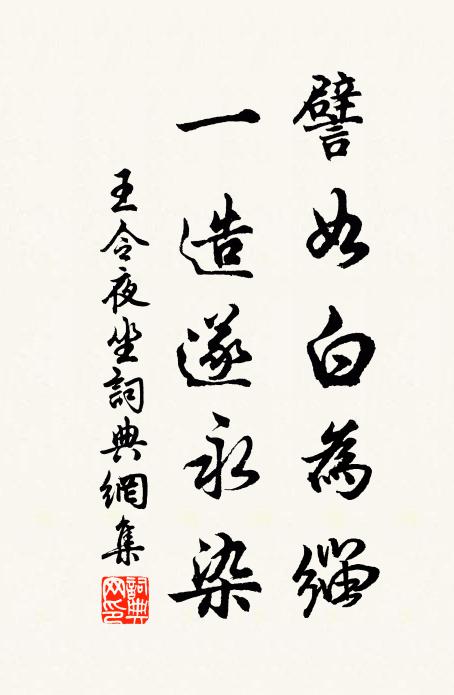 譬如白為緇
一造遂永染
王令夜坐詞典網集
詞典
网印